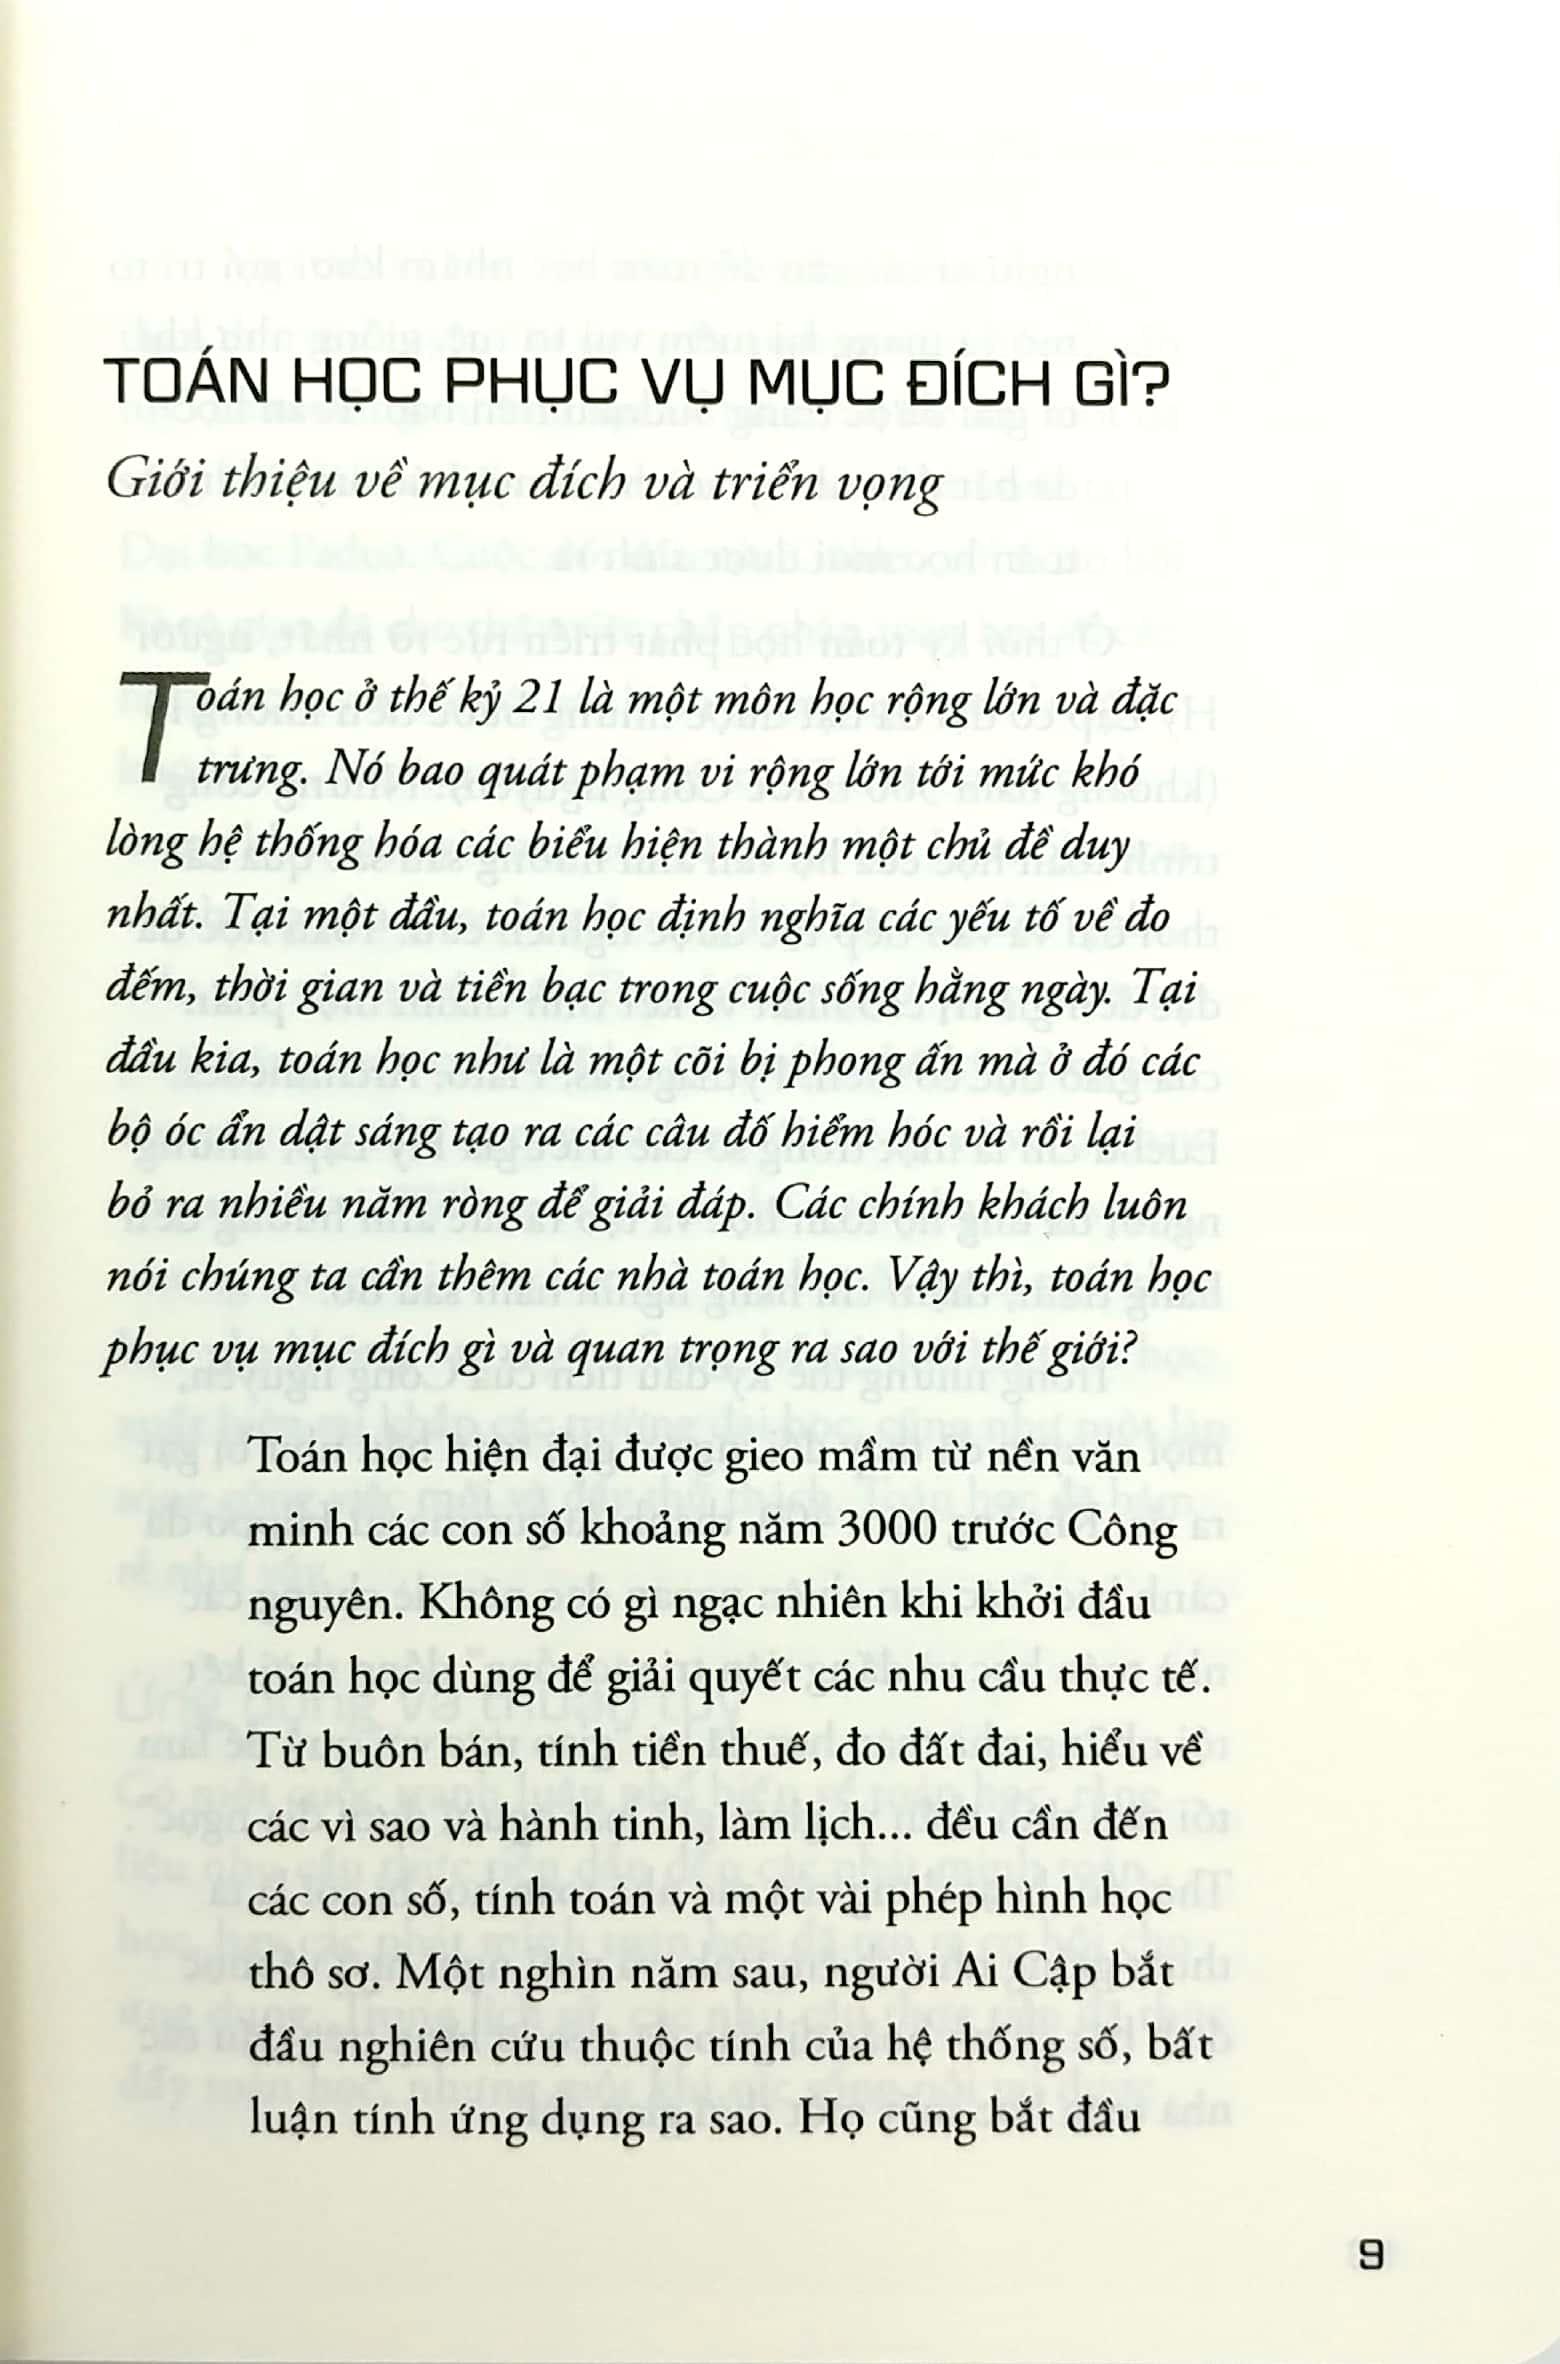 TOÁN HỌC PHỤC VỤ MỤC ĐÍCH GÌ?
Giới thiệu về mục đích và triển vọng
Toán học ở thế kỷ 21 là một môn học rộng lớn và đặc
trưng. Nó bao quát phạm vi rộng lớn tới mức khó
lòng hệ thống hóa các biểu hiện thành một chủ đề duy
nhất. Tại một đầu, toán học định nghĩa các yếu tố về đo
đếm, thời gian và tiền bạc trong cuộc sống hằng ngày. Tại
đầu kia, toán học như là một cõi bị phong ấn mà ở đó các
bộ óc ẩn dật sáng tạo ra các câu đố hiểm hóc và rồi lại
bỏ ra nhiều năm ròng để giải đáp. Các chính khách luôn
nói chúng ta cần thêm các nhà toán học. Vậy thì, toán học
phục vụ mục đích gì và quan trọng ra sao với thế giới?
Toán học hiện đại được gieo mầm từ nền văn
minh các con số khoảng năm 3000 trước Công
nguyên. Không có gì ngạc nhiên khi khởi đầu
toán học dùng để giải quyết các nhu cầu thực tế.
Từ buôn bán, tính tiền thuế, đo đất đai, hiểu về
các vì sao và hành tinh, làm lịch... đều cần đến
các con số, tính toán và một vài phép hình học
thô sơ. Một nghìn năm sau, người Ai Cập bắt
đầu nghiên cứu thuộc tính của hệ thống số, bất
luận tính ứng dụng ra sao. Họ cũng bắt đầu
9